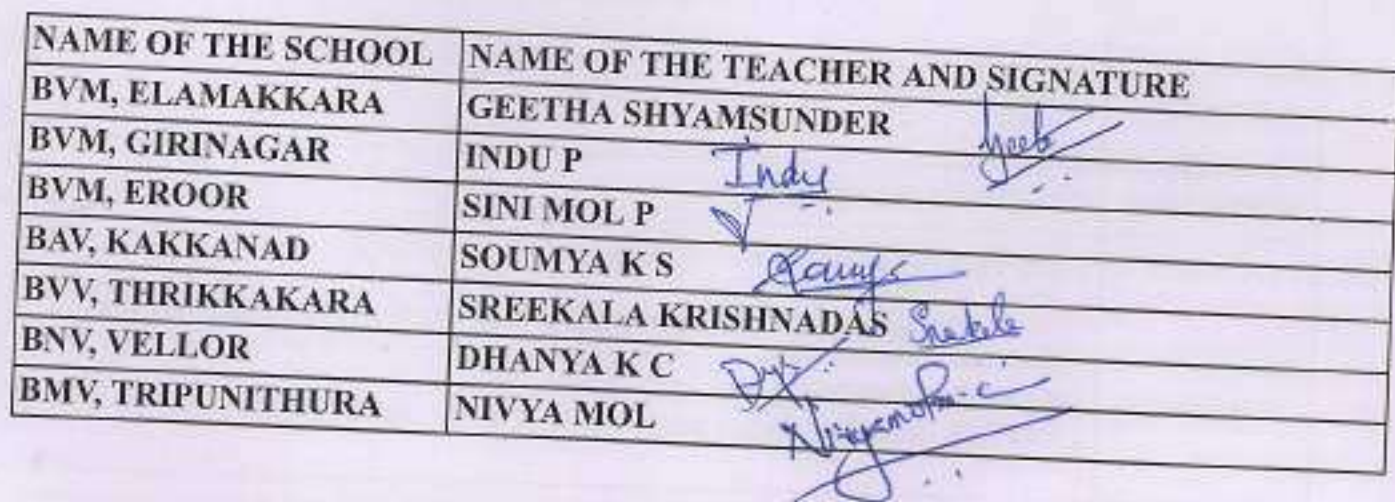 NAME OF THE SCHOOL NAME OF THE TEACHER AND SIGNATURE
BVM, ELAMAKKARA GEETHA SHYAMSUNDER
BVM, GIRINAGAR INDU P Indu
BVM, EROOR SINI MOL P
BAV, KAKKANAD SOUMYA K S
BVV, THRIKKAKARA SREEKALA KRISHNADAS
BNV, VELLOR DHANYA K C
BMV, TRIPUNITHURA NIVYA MOL